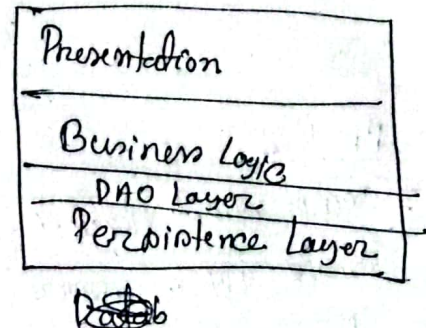 Presentation
Business Logic
DAO Layer
Persistence Layer